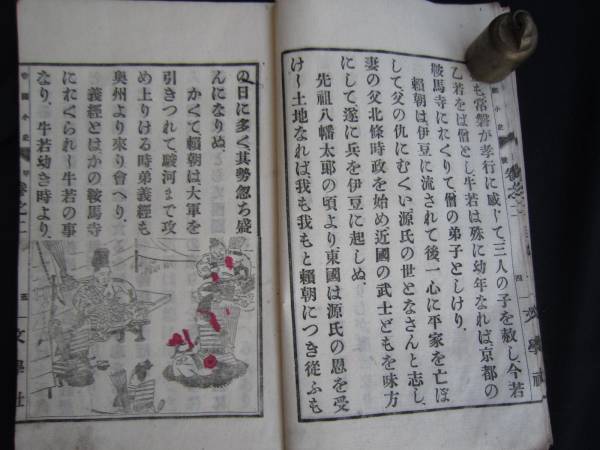 も常磐が孝行に感じて、三人の子を赦し、今若
乙若をば僧とし、牛若は殊に幼年なれば、京都の
鞍馬寺におくりて僧の弟子としけり、
頼朝は伊豆に流されて後、一心に平家を亡ぼ
して、父の仇にむくい源氏の世となさんと志し、
妻の父北條時政を始め、近國の武士どもを味方
にして、遂に兵を伊豆に起しぬ、
先祖八幡太郎の頃より、東國は源氏の恩を受
けし土地なれば、我も我もと頼朝につき從ふも
四
文學社
の日に多く、其勢忽ち盛
んになりぬ、
かくて、頼朝は大軍を
引きつれて、駿河まで攻
め上りける時、弟義經も
奥州より來り會へり、
義經とはかの鞍馬寺
におくられし牛若の事
なり、牛若幼き時より、
帝國小史
卷之二
五
文學社